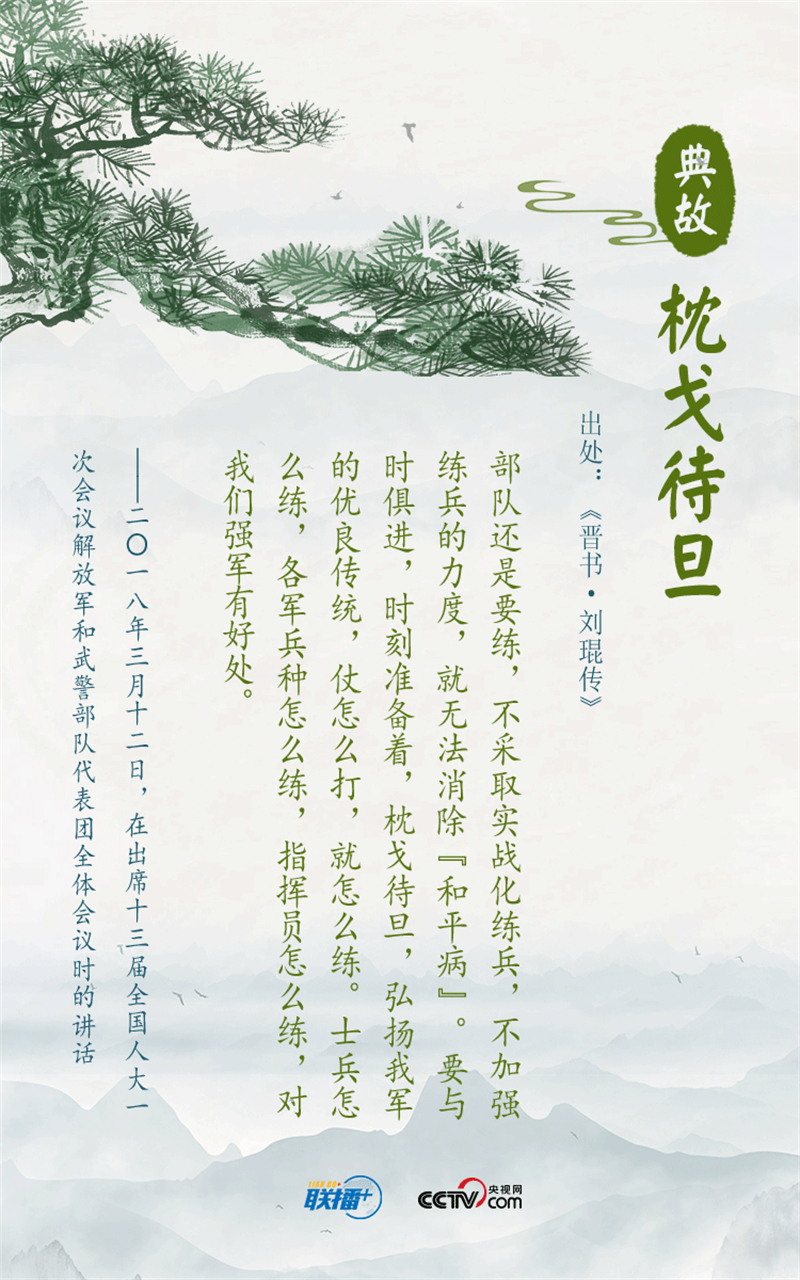 典故
枕戈待旦
出处：《晋书·刘琨传》
部队还是要练，不采取实战化练兵，不加强
练兵的力度，就无法消除『和平病』。要与
时俱进，时刻准备着，枕戈待旦，弘扬我军
的优良传统，仗怎么打，就怎么练。士兵怎
么练，各军兵种怎么练，指挥员怎么练，对
我们强军有好处。
——二〇一八年三月十二日，在出席十三届全国人大一
次会议解放军和武警部队代表团全体会议时的讲话
LIAN BO+
联播+
CCTV 央视网
com